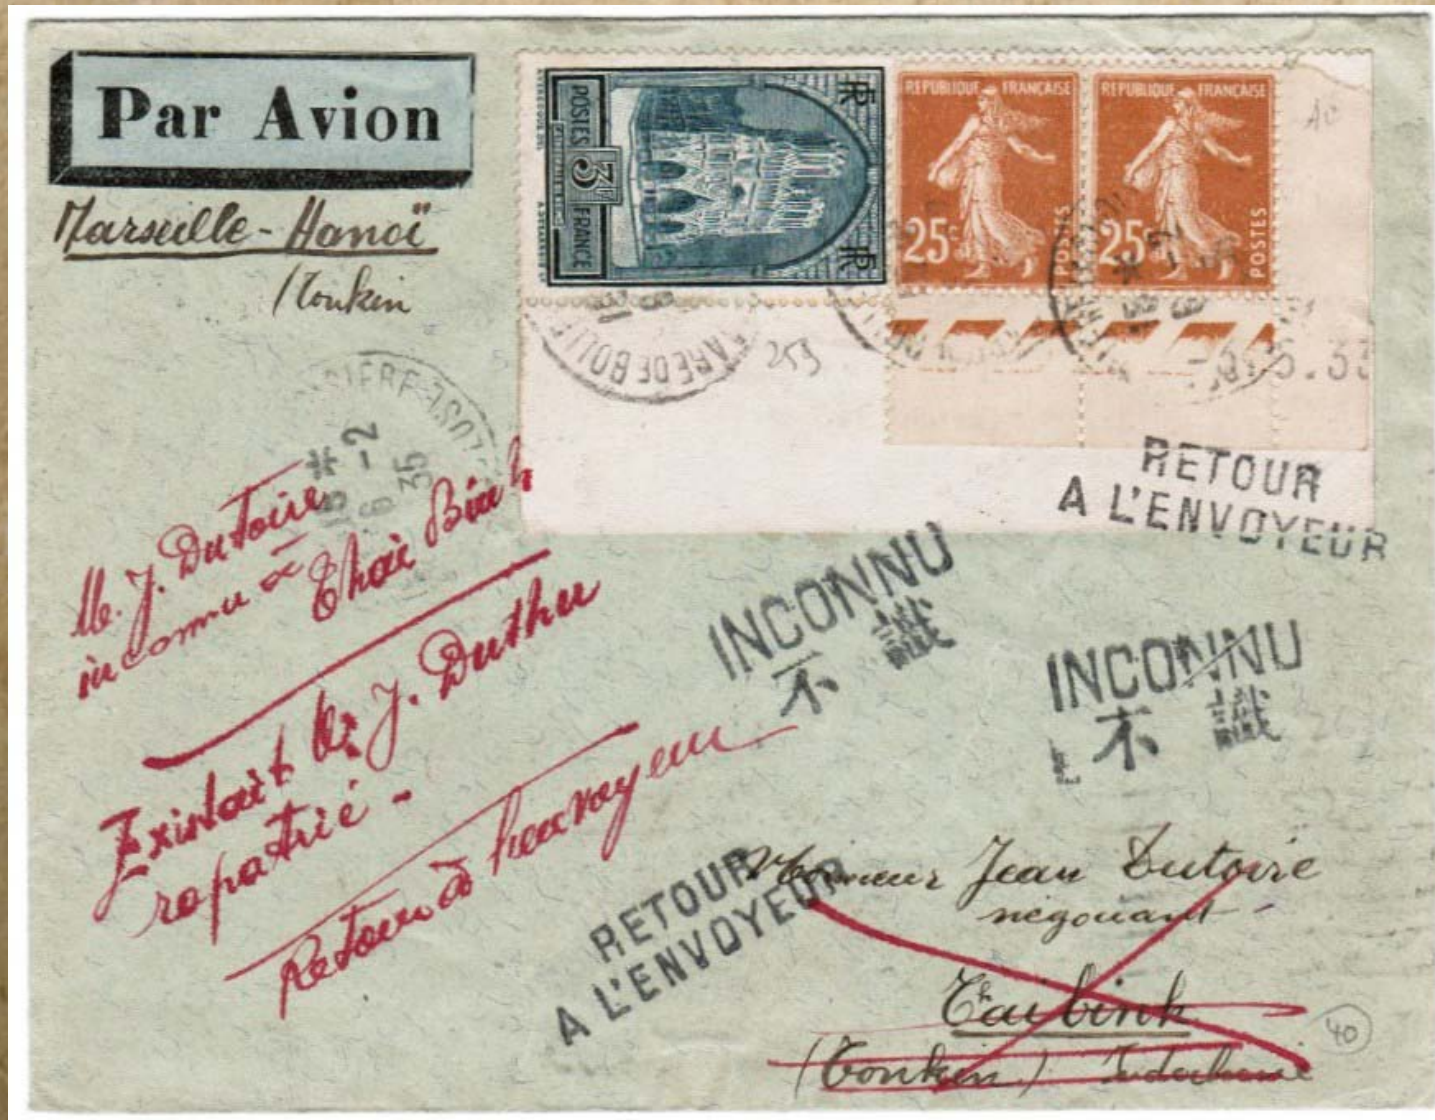 Par Avion
Marseille-Hanoï
(Tonkin
POSTES 3F FRANCE
RF
RF
REPUBLIQUE FRANÇAISE
25c
POSTES
REPUBLIQUE FRANÇAISE
25c
POSTES
40
253
GARE DE BOU
5.33
15 *
6 -2
35
RETOUR
A L'ENVOYEUR
M. J. Dutoire
inconnu à
Thaï Binh
INCONNU
不識
INCONNU
不識
Existait M. J. Duthu
rapatrié -
Retour à l'envoyeur
RETOUR
A L'ENVOYEUR
Monsieur Jean Dutoire
négociant
Thaibink
(Tonkin) Indochine
40